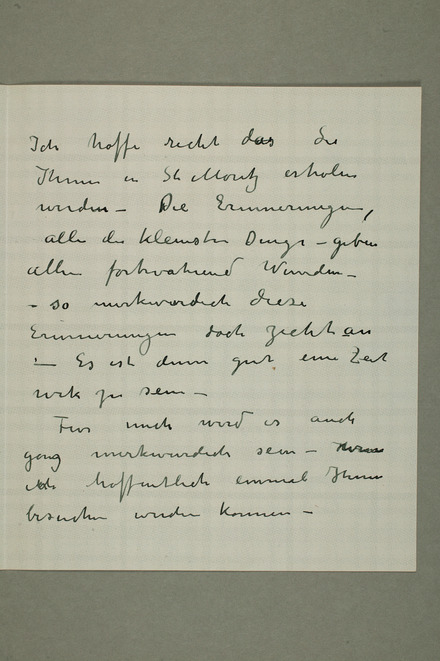 Ich hoffe recht das Sie
Ihnen in St Moritz erholen
werden – Die Erinnerungen,
alle die kleinsten Dinge – geben
allen fortwahrend Wunden –
– so merkwurdich diese
Erinnerungen doch zieht an
– Es ist denn gut eine Zeit
wek zu sein –
Fur mich wird es auch
ganz merkwurdich sein –
hoffentlich einmal Ihnen
besuchen werden konnen –